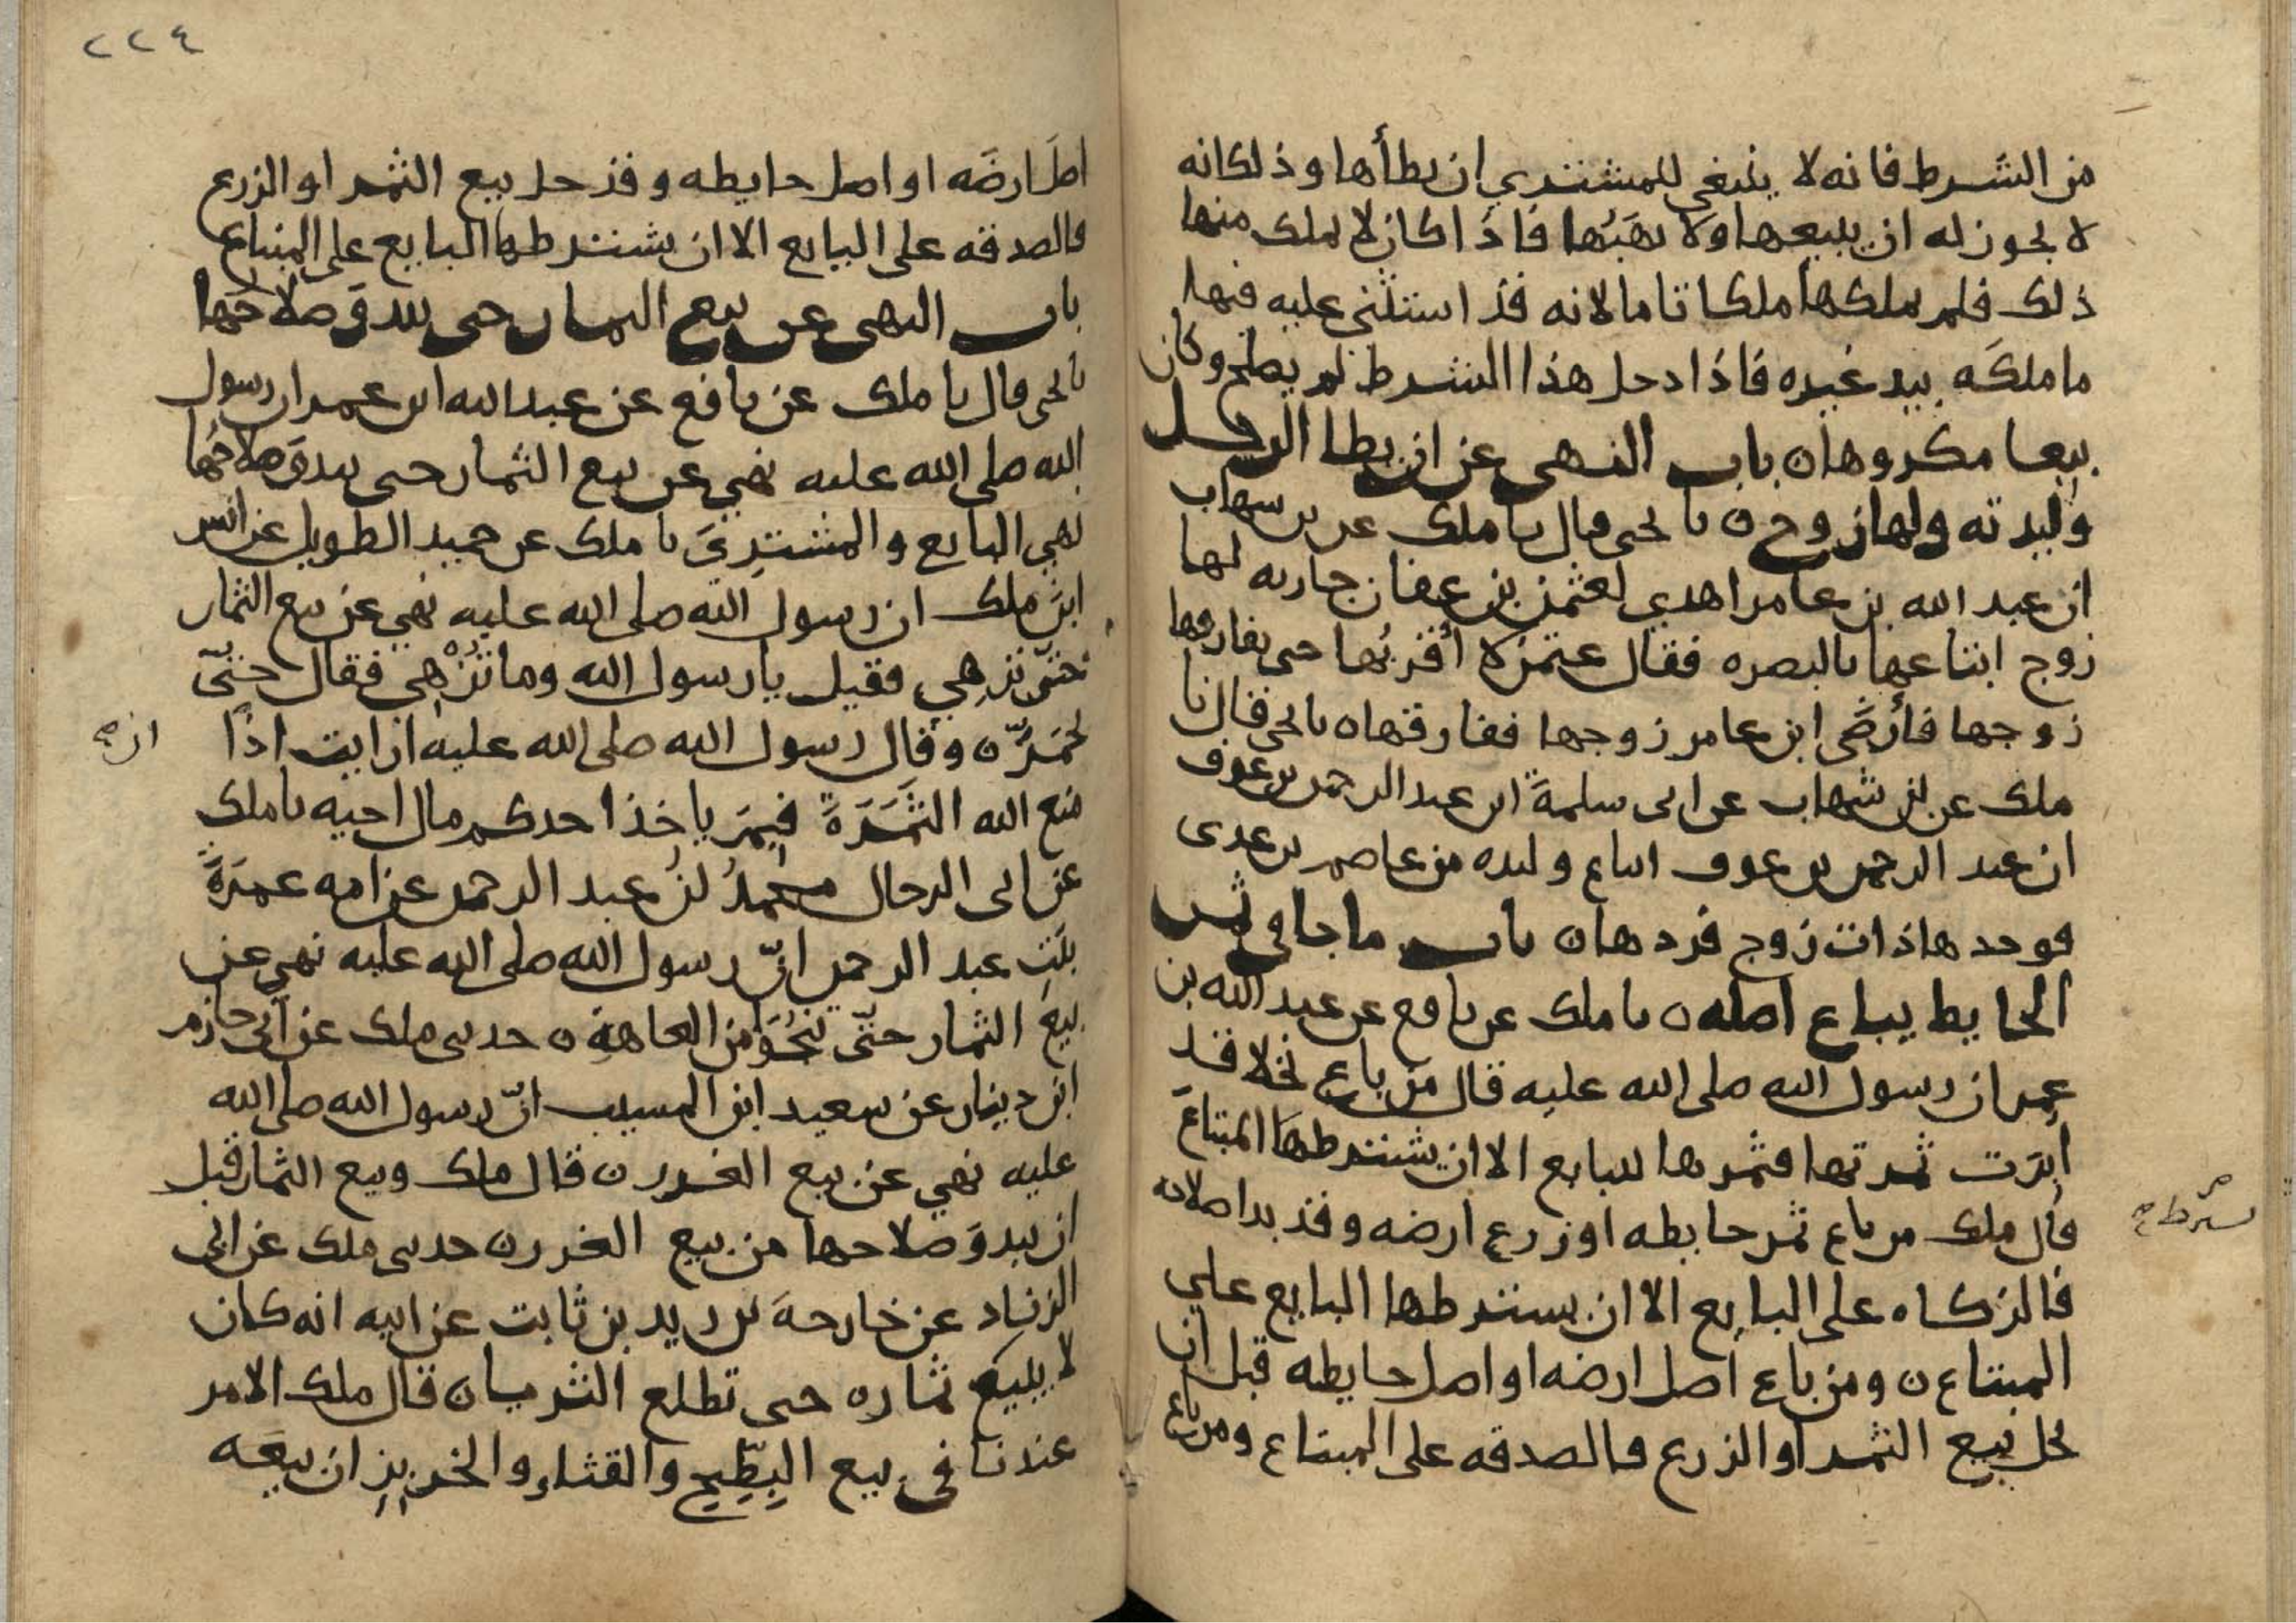 من الشرط فانه لا ينبغي للمشتري ان يطأها وذلك انه
لا يجوز له ان يبيعها ولا يهَبَها فاذا كان لا يملك منها
ذلك فلم يملكها ملكا تاما لانه قد استثني عليه فيها
ما ملكَه بيد غيره فاذا دخل هذا الشرط لم يصلح وكان
بيعا مكروها ن باب النهي عن ان يطا الرجل
وليدته ولها زوج ن نا يحيى قال نا ملك عن بن شهاب
ان عبد الله بن عامر اهدي لعثمن بن عفان جاريه لها
زوج ابتاعها بالبصره فقال عثمن لا أقربُها حتى يفارقها
زوجها فأرضَى ابن عامر زوجها ففارقها ن نا يحيى قال نا
ملك عن بن شهاب عن ابي سلمةَ ابن عبد الرحمن بن عوف
ان عبد الرحمن بن عوف ابتاع وليده من عاصم بن عدى
فوجدها ذات زوج فردها ن باب ما جا في ثمر
الحايط يباع اصله ن نا ملك عن نافع عن عبد الله بن
عمر ان رسول الله صلى الله عليه قال من باع نخلا قد
أبرَت ثمرتها فثمرها للبايع الا ان يشترطها المبتاعَ
قال ملك من باع ثمر حايطه او زرع ارضه وقد بدا صلاحه
يشترط ح
فالزكاه على البايع الا ان يشترطها البايع علي
المبتاع ن ومن باع اصل ارضه او اصل حايطه قبل ان
يحل بيع الثمر او الزرع فالصدقه على المبتاع ومن باع
٢٢٤
اصلَ ارضَه او اصل حايطه وقد حل بيع الثمر او الزرع
فالصدقه على البايع الا ان يشترطها البايع على المبتاع
باب النهى عن بيع الثمار حتى يبدوَ صلاحُها
نا يحيى قال نا ملك عن نافع عن عبد الله ابن عمر ان رسول
الله صلى الله عليه نهي عن بيع الثمار حتى يبدوَ صلاحُها
نهي البايع والمشتريَ نا ملك عن حميد الطويل عن انس
ابن ملك ان رسول الله صلى الله عليه نهي عن بيع الثمار
حتّى تزهي فقيل يا رسول الله وما تُزْهِي فقال حتّى
تحمَرُّ ن وقال رسول الله صلى الله عليه ارايت اذا
منع الله الثَّمَرَةَ فبِمَ ياخذ احدكم مال اخيه نا ملك
عن ابى الرجال محمدُ بنُ عبد الرحمن عن امه عمرَةَ
بنتِ عبد الرحمن انّ رسول الله صلى الله عليه نهي عن
بيع الثمار حتّى تنجُوَ من العاهة ن حدثنى ملك عن أبى حازم
ابن دينار عن سعيد ابن المسيب انّ رسول الله صلى الله
عليه نهي عن بيع الغرر ن قال ملك وبيع الثمار قبل
ان يبدوَ صلاحها من بيع الغرر ن حدثنى ملك عن ابي
الزناد عن خارجةَ بن زيد بن ثابت عن ابيه انه كان
لا يبيع ثماره حتى تطلع الثريا ن قال ملك الامر
عندنا في بيع البِطِّيخِ والقثاء والخربِزِ ان بيعَه